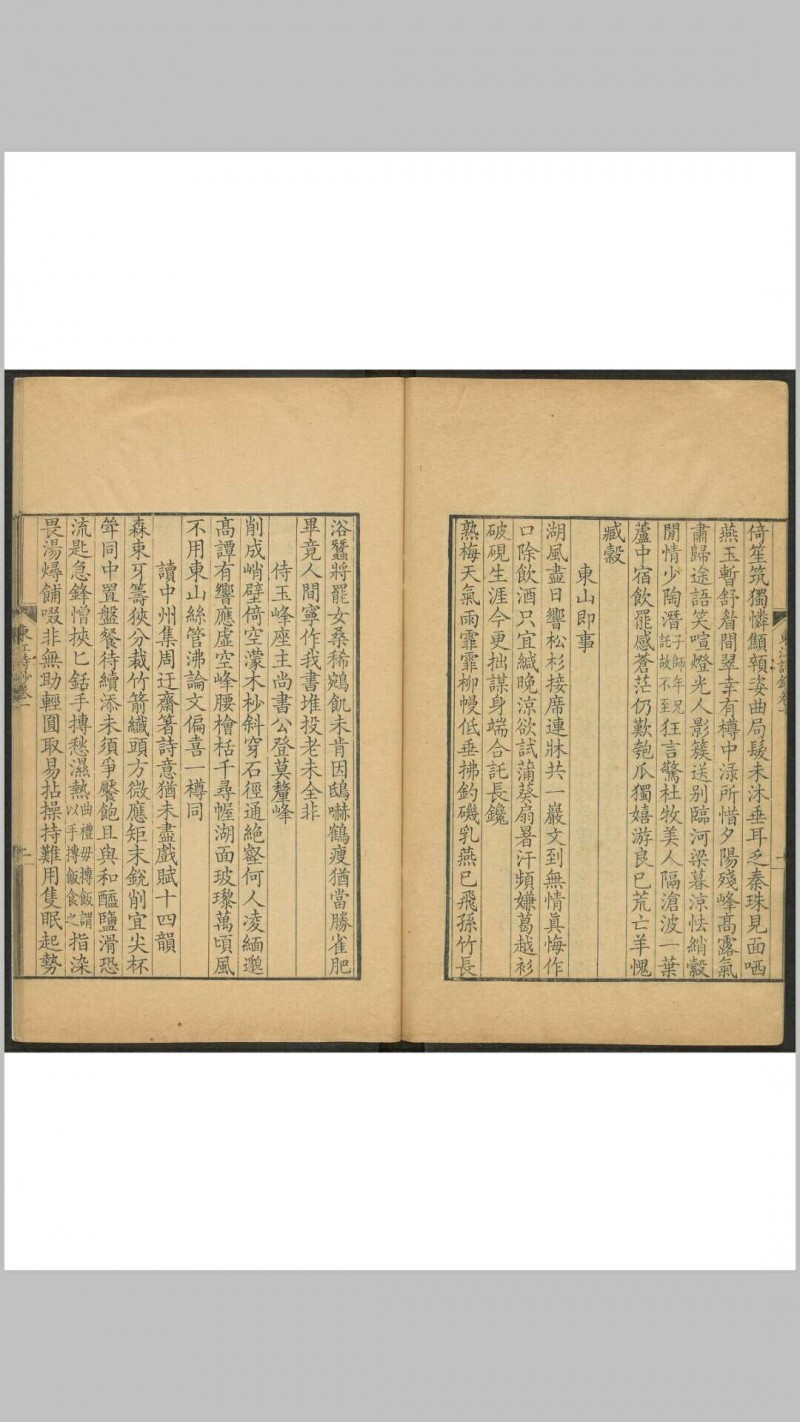 倚笙筑獨憐顦顇姿曲局髮未沐垂耳乏秦珠見面哂
燕玉暫舒眉間翠幸有樽中淥所惜夕陽殘峰高露氣
肅歸途語笑喧燈光人影簇送別臨河梁暮涼怯綃縠
閒情少陶潛子師年兄託故不至狂言驚杜牧美人隔滄波一葉
蘆中宿飲罷感蒼茫仍歎匏瓜獨嬉游良已荒亡羊愧
臧穀
東山即事
湖風盡日響松杉接席連牀共一巖文到無情真悔作
口除飲酒只宜緘晚涼欲試蒲葵扇暑汗頻嫌葛越衫
破硯生涯今更拙謀身端合託長鑱
熟梅天氣雨霏霏柳幔低垂拂釣磯乳燕已飛孫竹長
浴蠶將罷女桑稀鵷飢未肯因鴟嚇鶴瘦猶當勝雀肥
畢竟人間寧作我書堆投老未全非
侍玉峰座主尚書公登莫釐峰
削成峭壁倚空濛木杪斜穿石徑通絕壑何人凌緬邈
高譚有響應虛空峰腰檜栝千尋幄湖面玻瓈萬頃風
不用東山絲管沸論文偏喜一樽同
讀中州集周迂齋箸詩意猶未盡戲賦十四韻
森束牙籌狹分裁竹箭纖頭方微應矩末銳削宜尖杯
斝同中置盤餐待續添未須爭饜飽且與和醯鹽滑恐
流匙急鋒憎挾匕銛手摶愁濕熱曲禮毋摶飯謂以手摶飯食之指染
畏湯燖餔啜非無助輕圓取易拈操持難用隻眠起勢